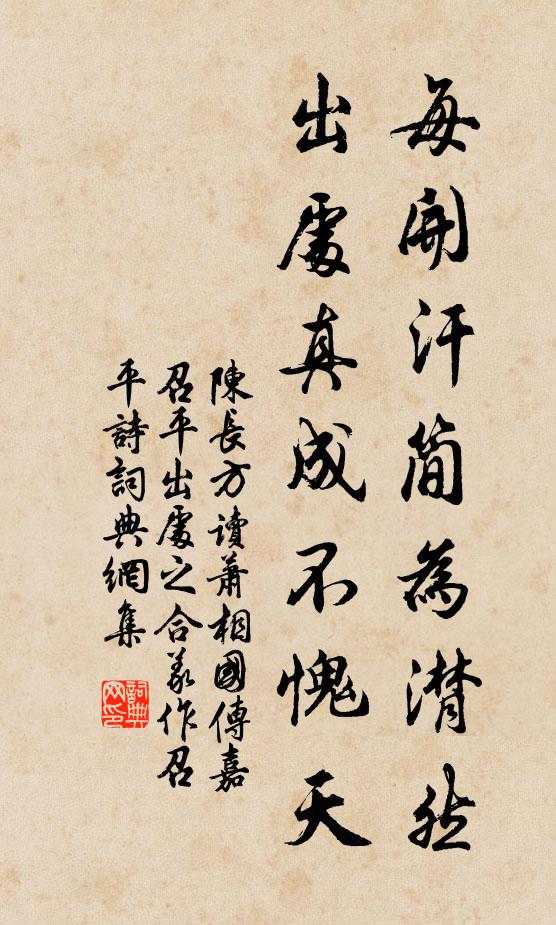 每開汗簡為潸然
出處真成不愧天
陳長方讀蕭相國傳嘉
召平出處之合義作召
平詩詞典網集
詞典
网印